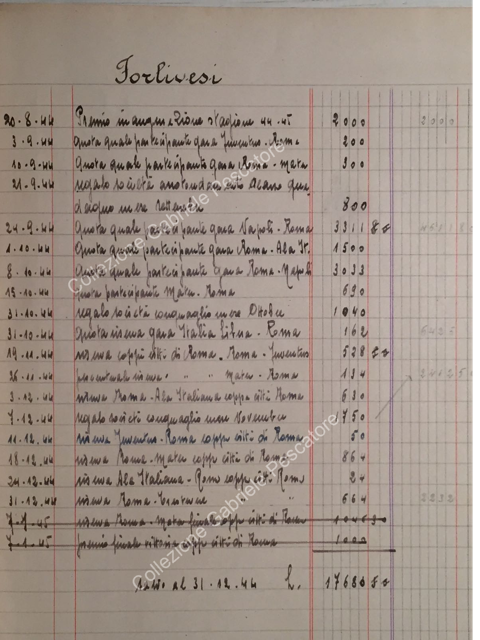 Forlivesi
20-8-44 Premio inaugurazione stagione 44-45 2000 2000
3-9-44 quota quale partecipante gara Juventus-Roma 200
10-9-44 Quota quale partecipante gara Roma-Mater 300
21-9-44 regalo società
mese settembre 800
24-9-44 Quota quale partecipante gara Napoli-Roma 3311 80
1-10-44 Quota quale partecipante gara Roma-Ala It. 1500
8-10-44 Quota quale partecipante gara Roma-Napoli 3033
12-10-44 quota partecipante Mater-Roma 690
31-10-44 regalo società conguaglio mese Ottobre 1040
31-10-44 Quota gara Italia Libera-Roma 162
19-11-44 coppa città di Roma. Roma-Juventus 528
26-11-44 percentuale " " Mater-Roma 134
3-12-44 Roma-Ala Italiana coppa città Roma 630
7-12-44 regalo società conguaglio mese Novembre 1750
11-12-44 Juventus-Roma coppa città di Roma 50
18-12-44 Roma-Mater coppa città di Roma 864
24-12-44 Ala Italiana-Roma coppa città Roma 24
31-12-44 Roma-Trastevere 664 2232
7-1-45 Roma-Mater finale coppa città di Roma
7-1-45 premio finale vittoria coppa città di Roma 1000
saldo al 31-12-44 L. 17680
Collezione Gabriele Pescatore
Collezione Gabriele Pescatore
Collezione Gabriele Pescatore